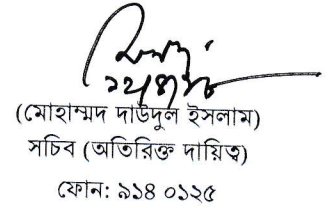 (মোহাম্মদ দাউদুল ইসলাম)
সচিব (অতিরিক্ত দায়িত্ব)
ফোন: ৯১৪ ০১২৫